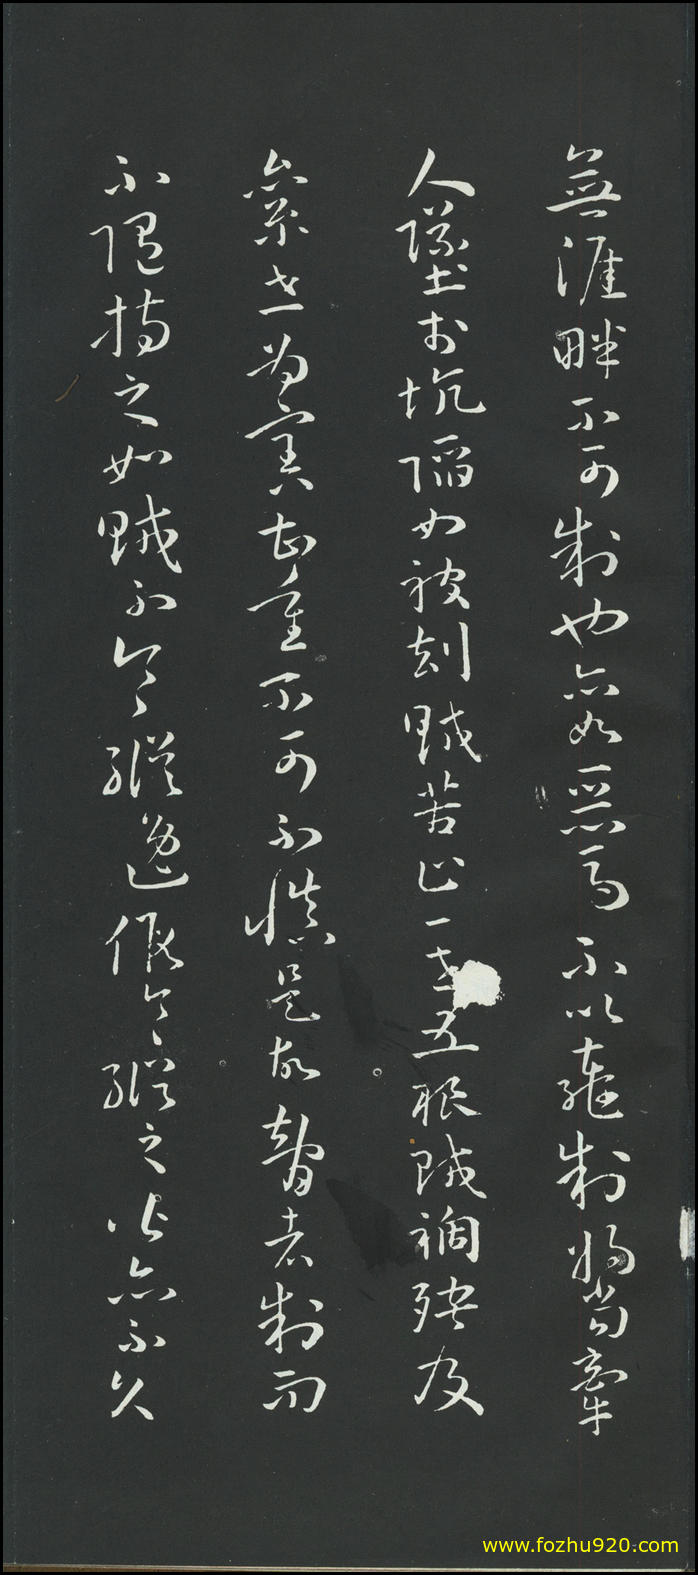 無涯畔不可制也亦如惡馬不以轡制將當牽
人墜於坑陷如被劫賊苦止一世五根賊禍殃及
累世為害甚重不可不慎是故智者制而
不隨持之如賊不令縱逸假令縱之皆亦不久
www.fozhu920.com